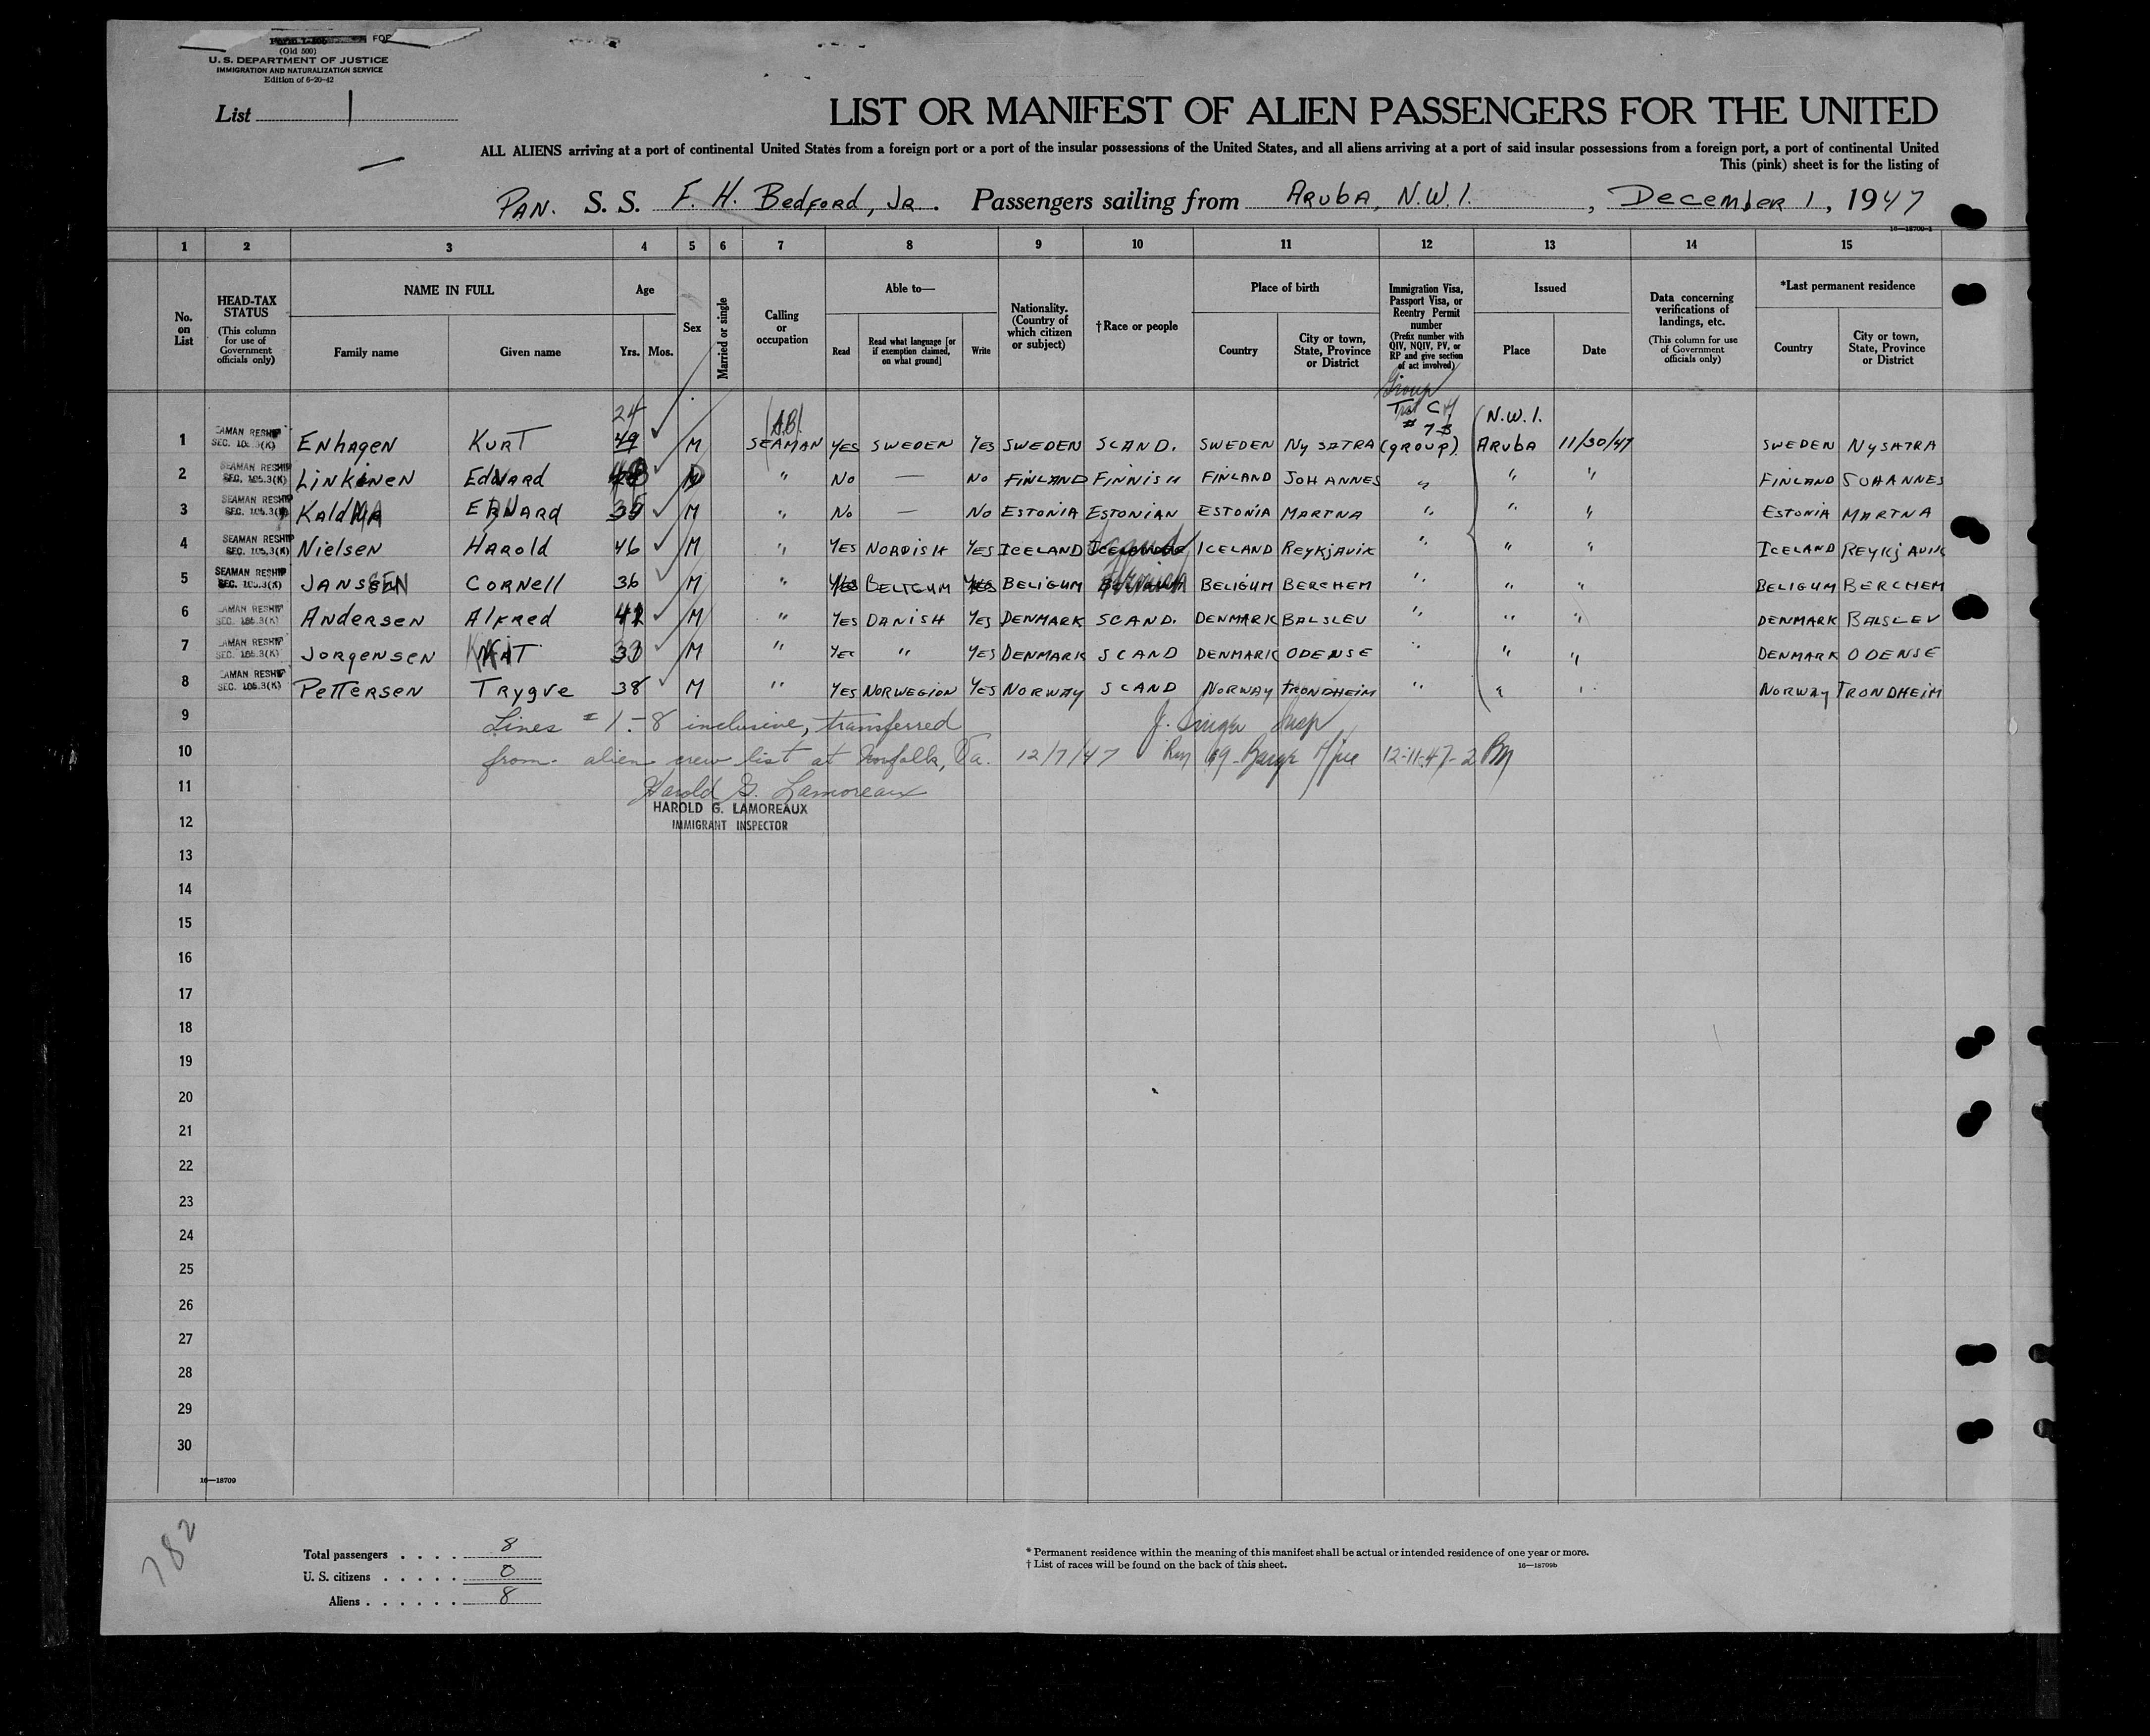 FOR
(Old 500)
U. S. DEPARTMENT OF JUSTICE
IMMIGRATION AND NATURALIZATION SERVICE
Edition of 6-20-42
List 1
LIST OR MANIFEST OF ALIEN PASSENGERS FOR THE UNITED
ALL ALIENS arriving at a port of continental United States from a foreign port or a port of the insular possessions of the United States, and all aliens arriving at a port of said insular possessions from a foreign port, a port of continental United
This (pink) sheet is for the listing of
PAN. S. S. F. H. Bedford, Jr. Passengers sailing from Aruba, N.W.I. , December 1, 1947
16—18709-1
1 2 3 4 5 6 7 8 9 10 11 12 13 14 15
No. on List
HEAD-TAX STATUS (This column for use of Government officials only)
NAME IN FULL
Family name Given name
Age
Yrs. Mos.
Sex
Married or single
Calling or occupation
Able to—
Read Read what language [or if exemption claimed, on what ground] Write
Nationality. (Country of which citizen or subject)
†Race or people
Place of birth
Country City or town, State, Province or District
Immigration Visa, Passport Visa, or Reentry Permit number (Prefix number with QIV, NQIV, PV, or RP and give section of act involved)
Issued
Place Date
Data concerning verifications of landings, etc. (This column for use of Government officials only)
*Last permanent residence
Country City or town, State, Province or District
Group
24 A.B. # 7-3 N.W.I.
1 SEAMAN RESHIP SEC. 105.3(K) Enhagen Kurt 49 M SEAMAN YES SWEDEN YES SWEDEN SCAND. SWEDEN NySATRA (group) ARubA 11/30/47 SWEDEN NySATRA
2 SEAMAN RESHIP SEC. 105.3(K) Linkinen Edward M " No — No FINLAND FINNISH FINLAND JOHANNES " " " FINLAND JOHANNES
3 SEAMAN RESHIP SEC. 105.3(K) KaldMA M " No — No ESTONIA ESTONIAN ESTONIA MARTNA " " " ESTONIA MARTNA
4 SEAMAN RESHIP SEC. 105.3(K) Nielsen Harold 46 M " YES NORDISH YES ICELAND Scand ICELAND Reykjavik " " " ICELAND REYKJAVIK
5 SEAMAN RESHIP SEC. 105.3(K) JANSSEN CORNell 36 M " YES BELIGUM YES BELIGUM Flemish BELIGUM BERCHEM " " " BELIGUM BERCHEM
6 SEAMAN RESHIP SEC. 105.3(K) Andersen Alfred 42 M " YES DANISH YES DENMARK SCAND. DENMARK BALSLEV " " " DENMARK BALSLEV
7 SEAMAN RESHIP SEC. 105.3(K) Jorgensen 33 M " YES " YES DENMARK SCAND DENMARK ODENSE " " " DENMARK ODENSE
8 SEAMAN RESHIP SEC. 105.3(K) Pettersen Trygve 38 M " YES NORWEGION YES NORWAY SCAND NORWAY TRONDHEIM " " " NORWAY TRONDHEIM
9 Lines # 1-8 inclusive, transferred J. Singer Insp
10 from alien crew list at Norfolk, Va. 12/7/47 Rm 69 - Barge Office 12-11-47 - 2 PM
11 Harold G. Lamoreaux
HAROLD G. LAMOREAUX
12 IMMIGRANT INSPECTOR
13
14
15
16
17
18
19
20
21
22
23
24
25
26
27
28
29
30
16—18709
782
Total passengers . . . . 8
U. S. citizens . . . . . 0
Aliens . . . . . . 8
* Permanent residence within the meaning of this manifest shall be actual or intended residence of one year or more.
† List of races will be found on the back of this sheet. 16—18709b